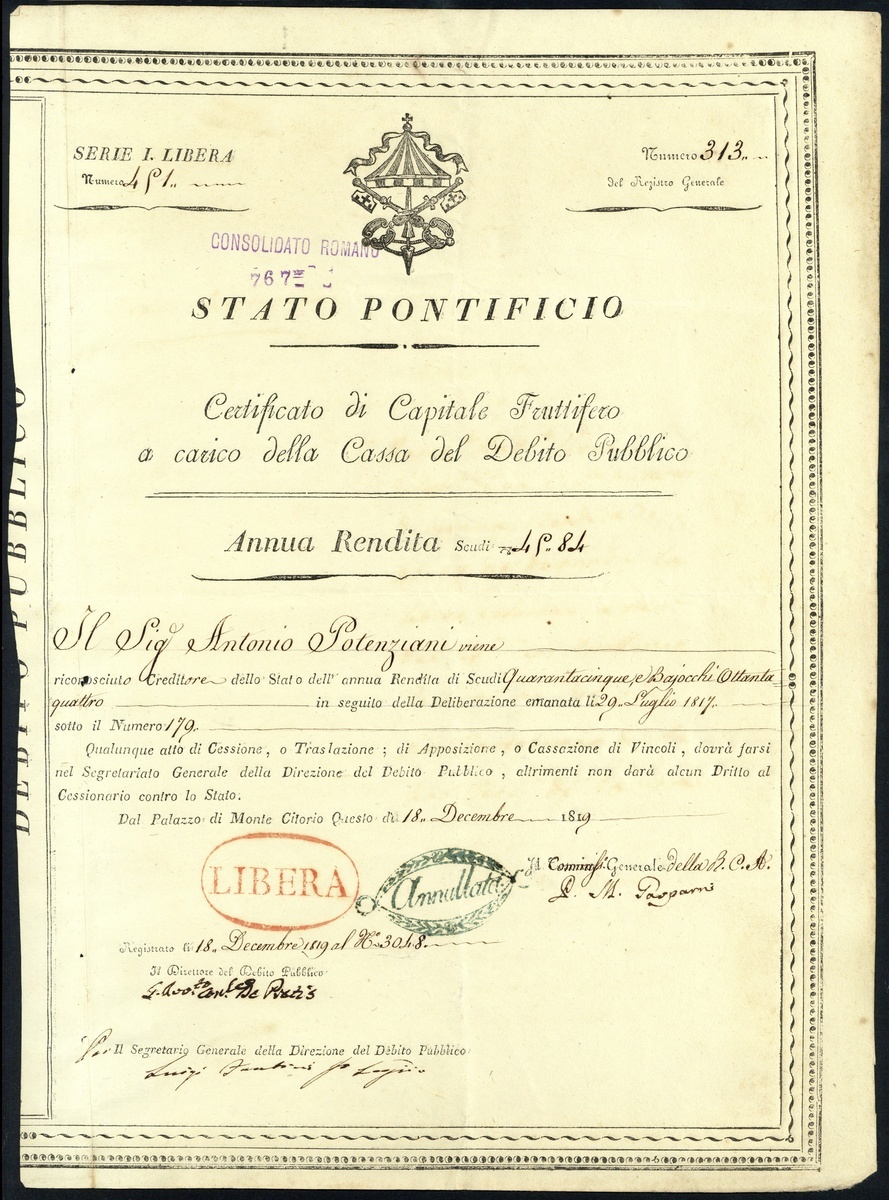 SERIE I. LIBERA
Numero 451.
Numero 313.
del Registro Generale
CONSOLIDATO ROMANO
767
STATO PONTIFICIO
Certificato di Capitale Fruttifero
a carico della Cassa del Debito Pubblico
Annua Rendita Scudi 45. 84
DEBITO PUBBLICO
Il Sig.r Antonio Potenziani viene
riconosciuto Creditore dello Stato dell' annua Rendita di Scudi Quarantacinque, e Bajocchi Ottanta
quattro in seguito della Deliberazione emanata li 29. Luglio 1817.
sotto il Numero 179.
Qualunque atto di Cessione, o Traslazione; di Apposizione, o Cassazione di Vincoli, dovrà farsi
nel Segretariato Generale della Direzione del Debito Pubblico, altrimenti non darà alcun Dritto al
Cessionario contro lo Stato.
Dal Palazzo di Monte Citorio Questo dì 18. Decembre 1819
LIBERA
Annullata
Il Commiss. Generale della R. C. A.
P. M. Gasparri
Registrato li 18. Decembre 1819 al N.o 3048.
Il Direttore del Debito Pubblico
De Pretis
Per Il Segretario Generale della Direzione del Debito Pubblico
Luigi